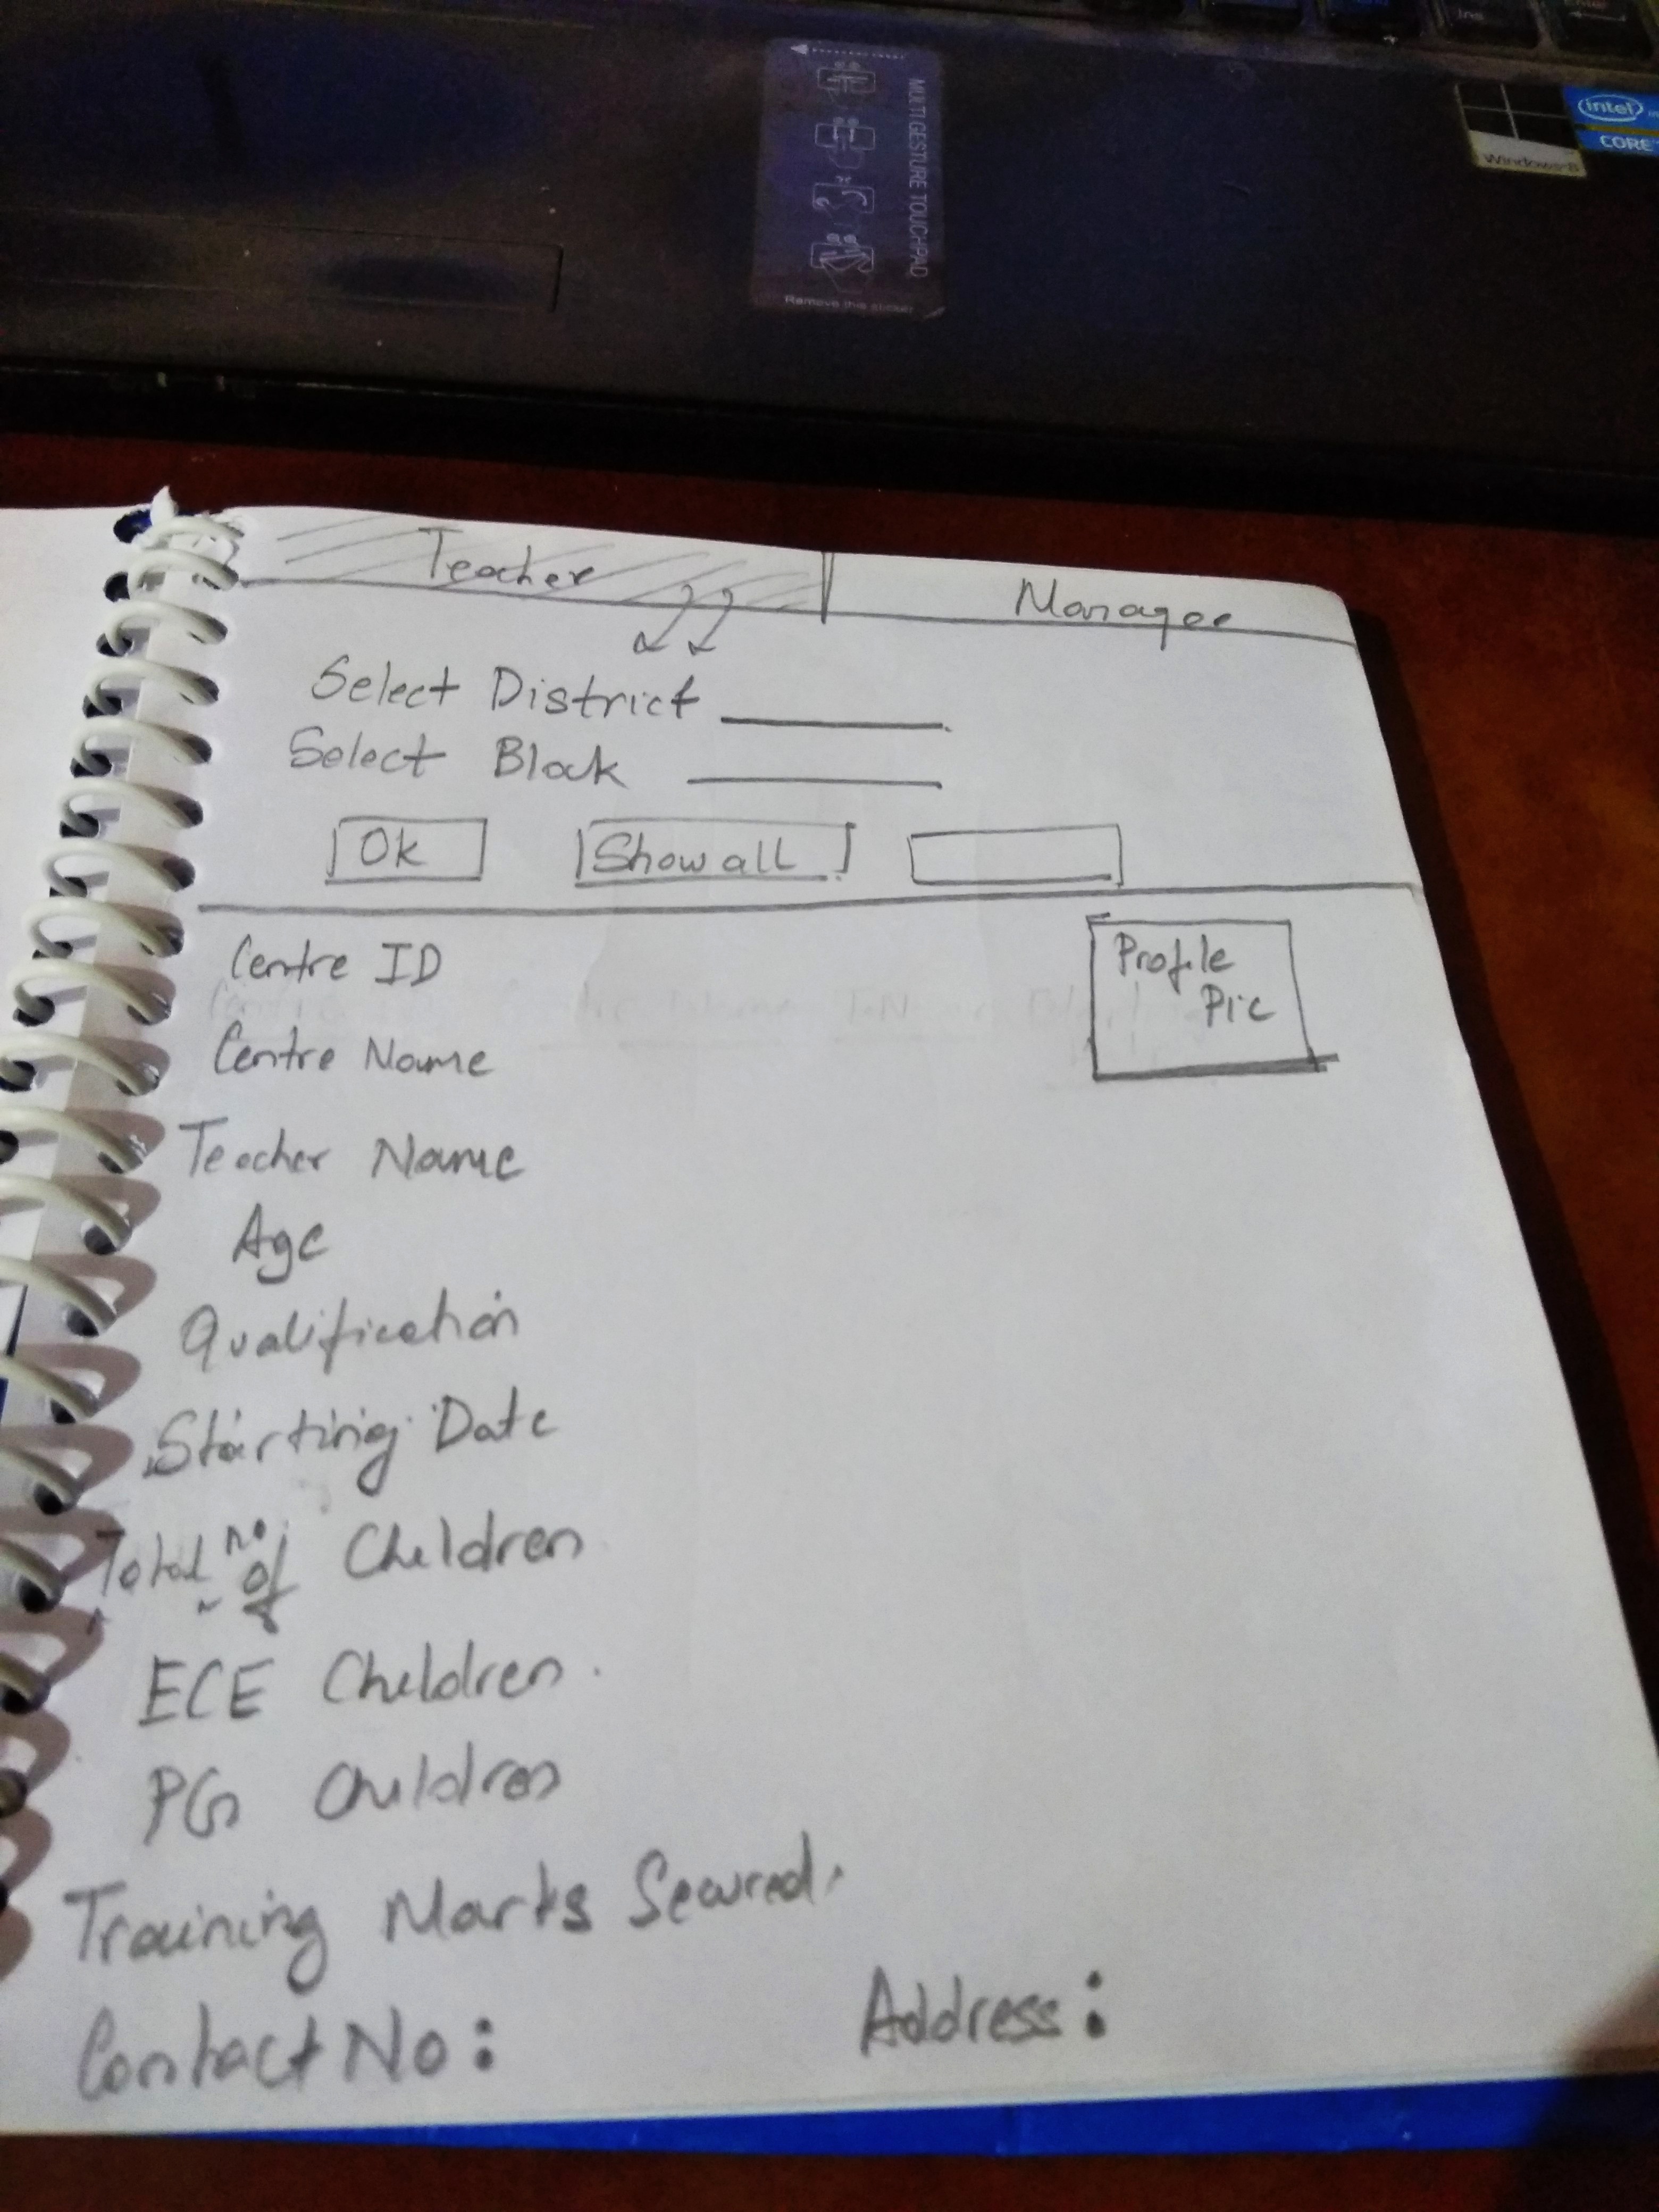 Ins
Enter
MULTI GESTURE TOUCHPAD
Remove this sticker
Windows 8
intel
CORE
Teacher Manager
Select District
Select Block
Ok Show all
Centre ID
Profile
Pic
Centre Name
Teacher Name
Age
Qualification
Starting Date
Total no of Children
ECE Children
PG Children
Training Marks Secured
Contact No: Address: